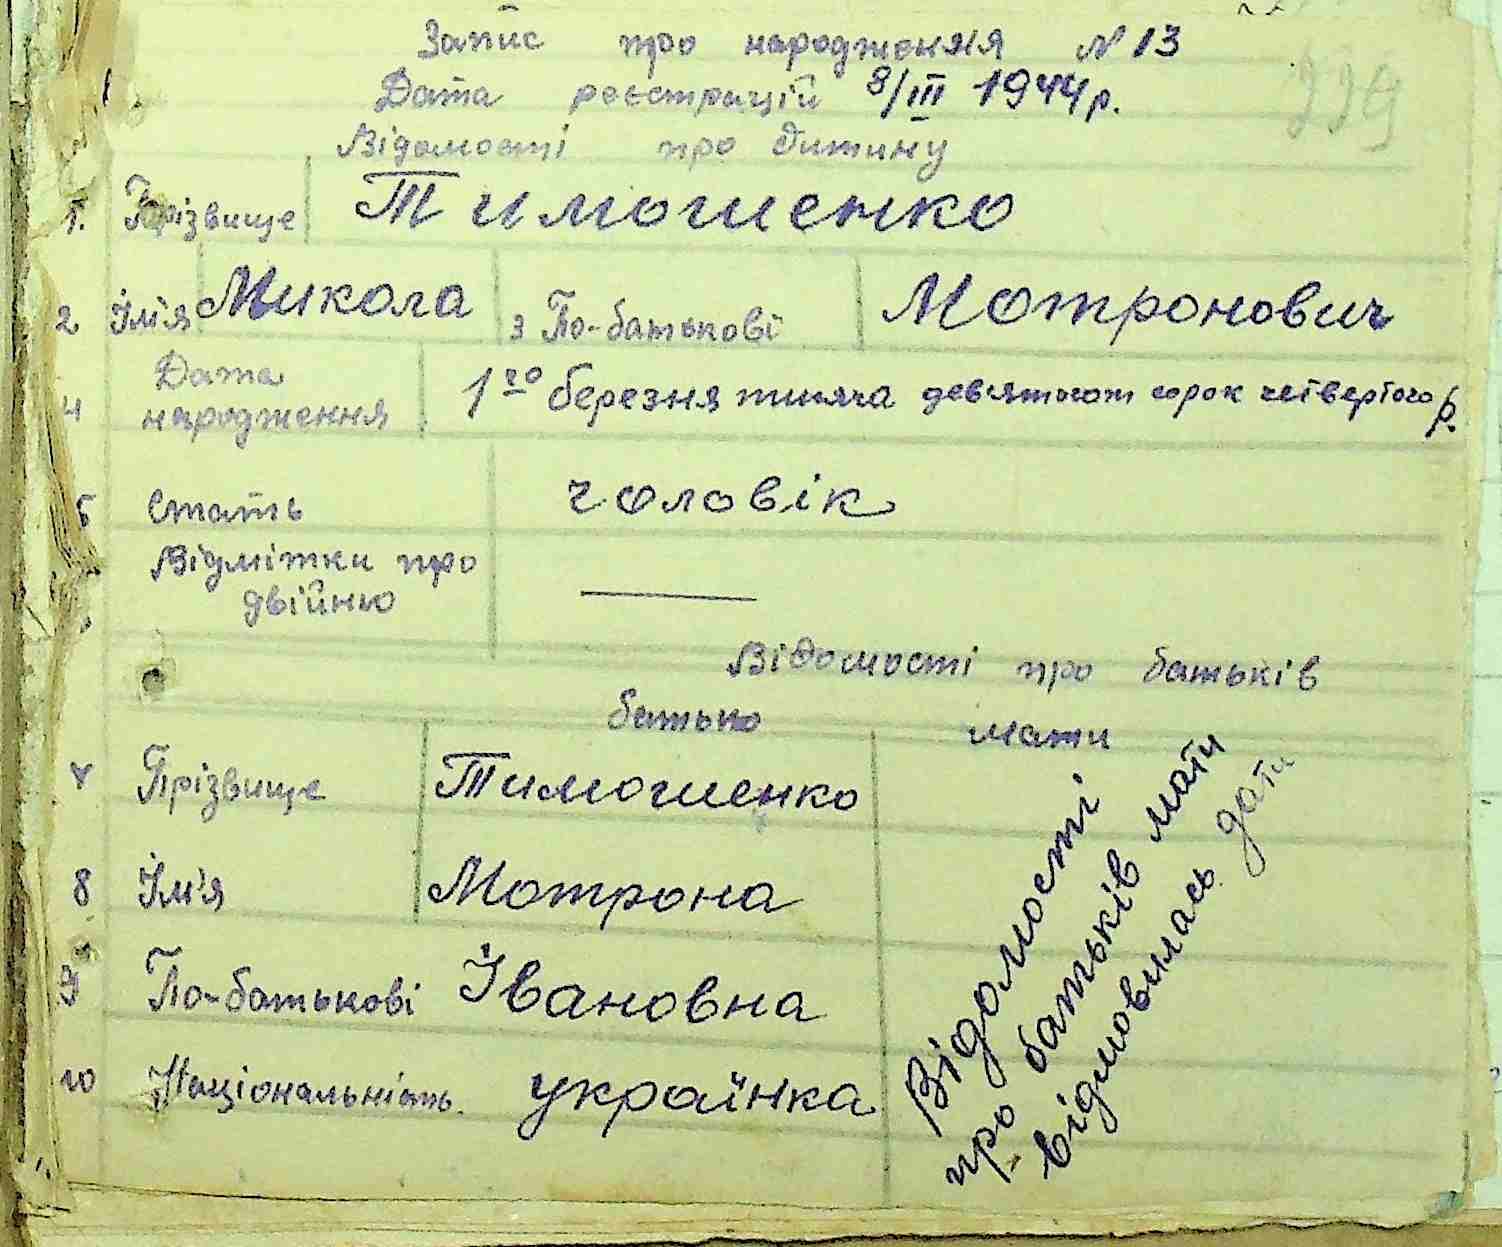 Запис про народження N 13
Дата реєстрацій 8/III 1944 р.
339
Відомості про дитину
1. Прізвище Тимошенко
2 Ім'я Микола 3 По-батькові Мотронович
4 Дата народження 1го березня тисяча девятьсот сорок четвертого р.
5 Стать чоловік
Відмітки про
двійню —
Відомості про батьків
батько мати
7 Прізвище Тимошенко
8 Ім'я Мотрона
9 По-батькові Івановна
10 Національність українка
Відомості
про батьків мати
відмовилась дати